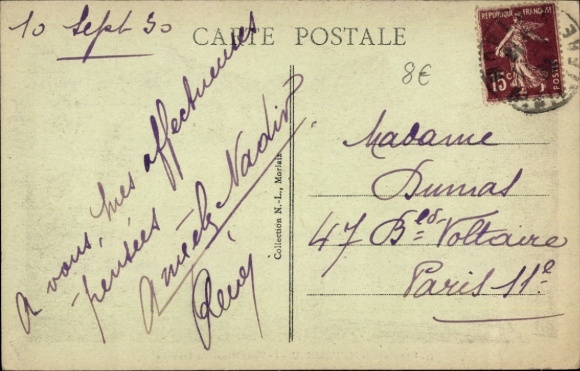 10 Sept 30
CARTE POSTALE
8€
REPUBLIQUE FRANÇAISE
15c
POSTES
A vous, mes affectueuses
pensées
René
Collection N.-L., Morlaix
Madame
Dumas
47 Bd Voltaire
Paris 11e